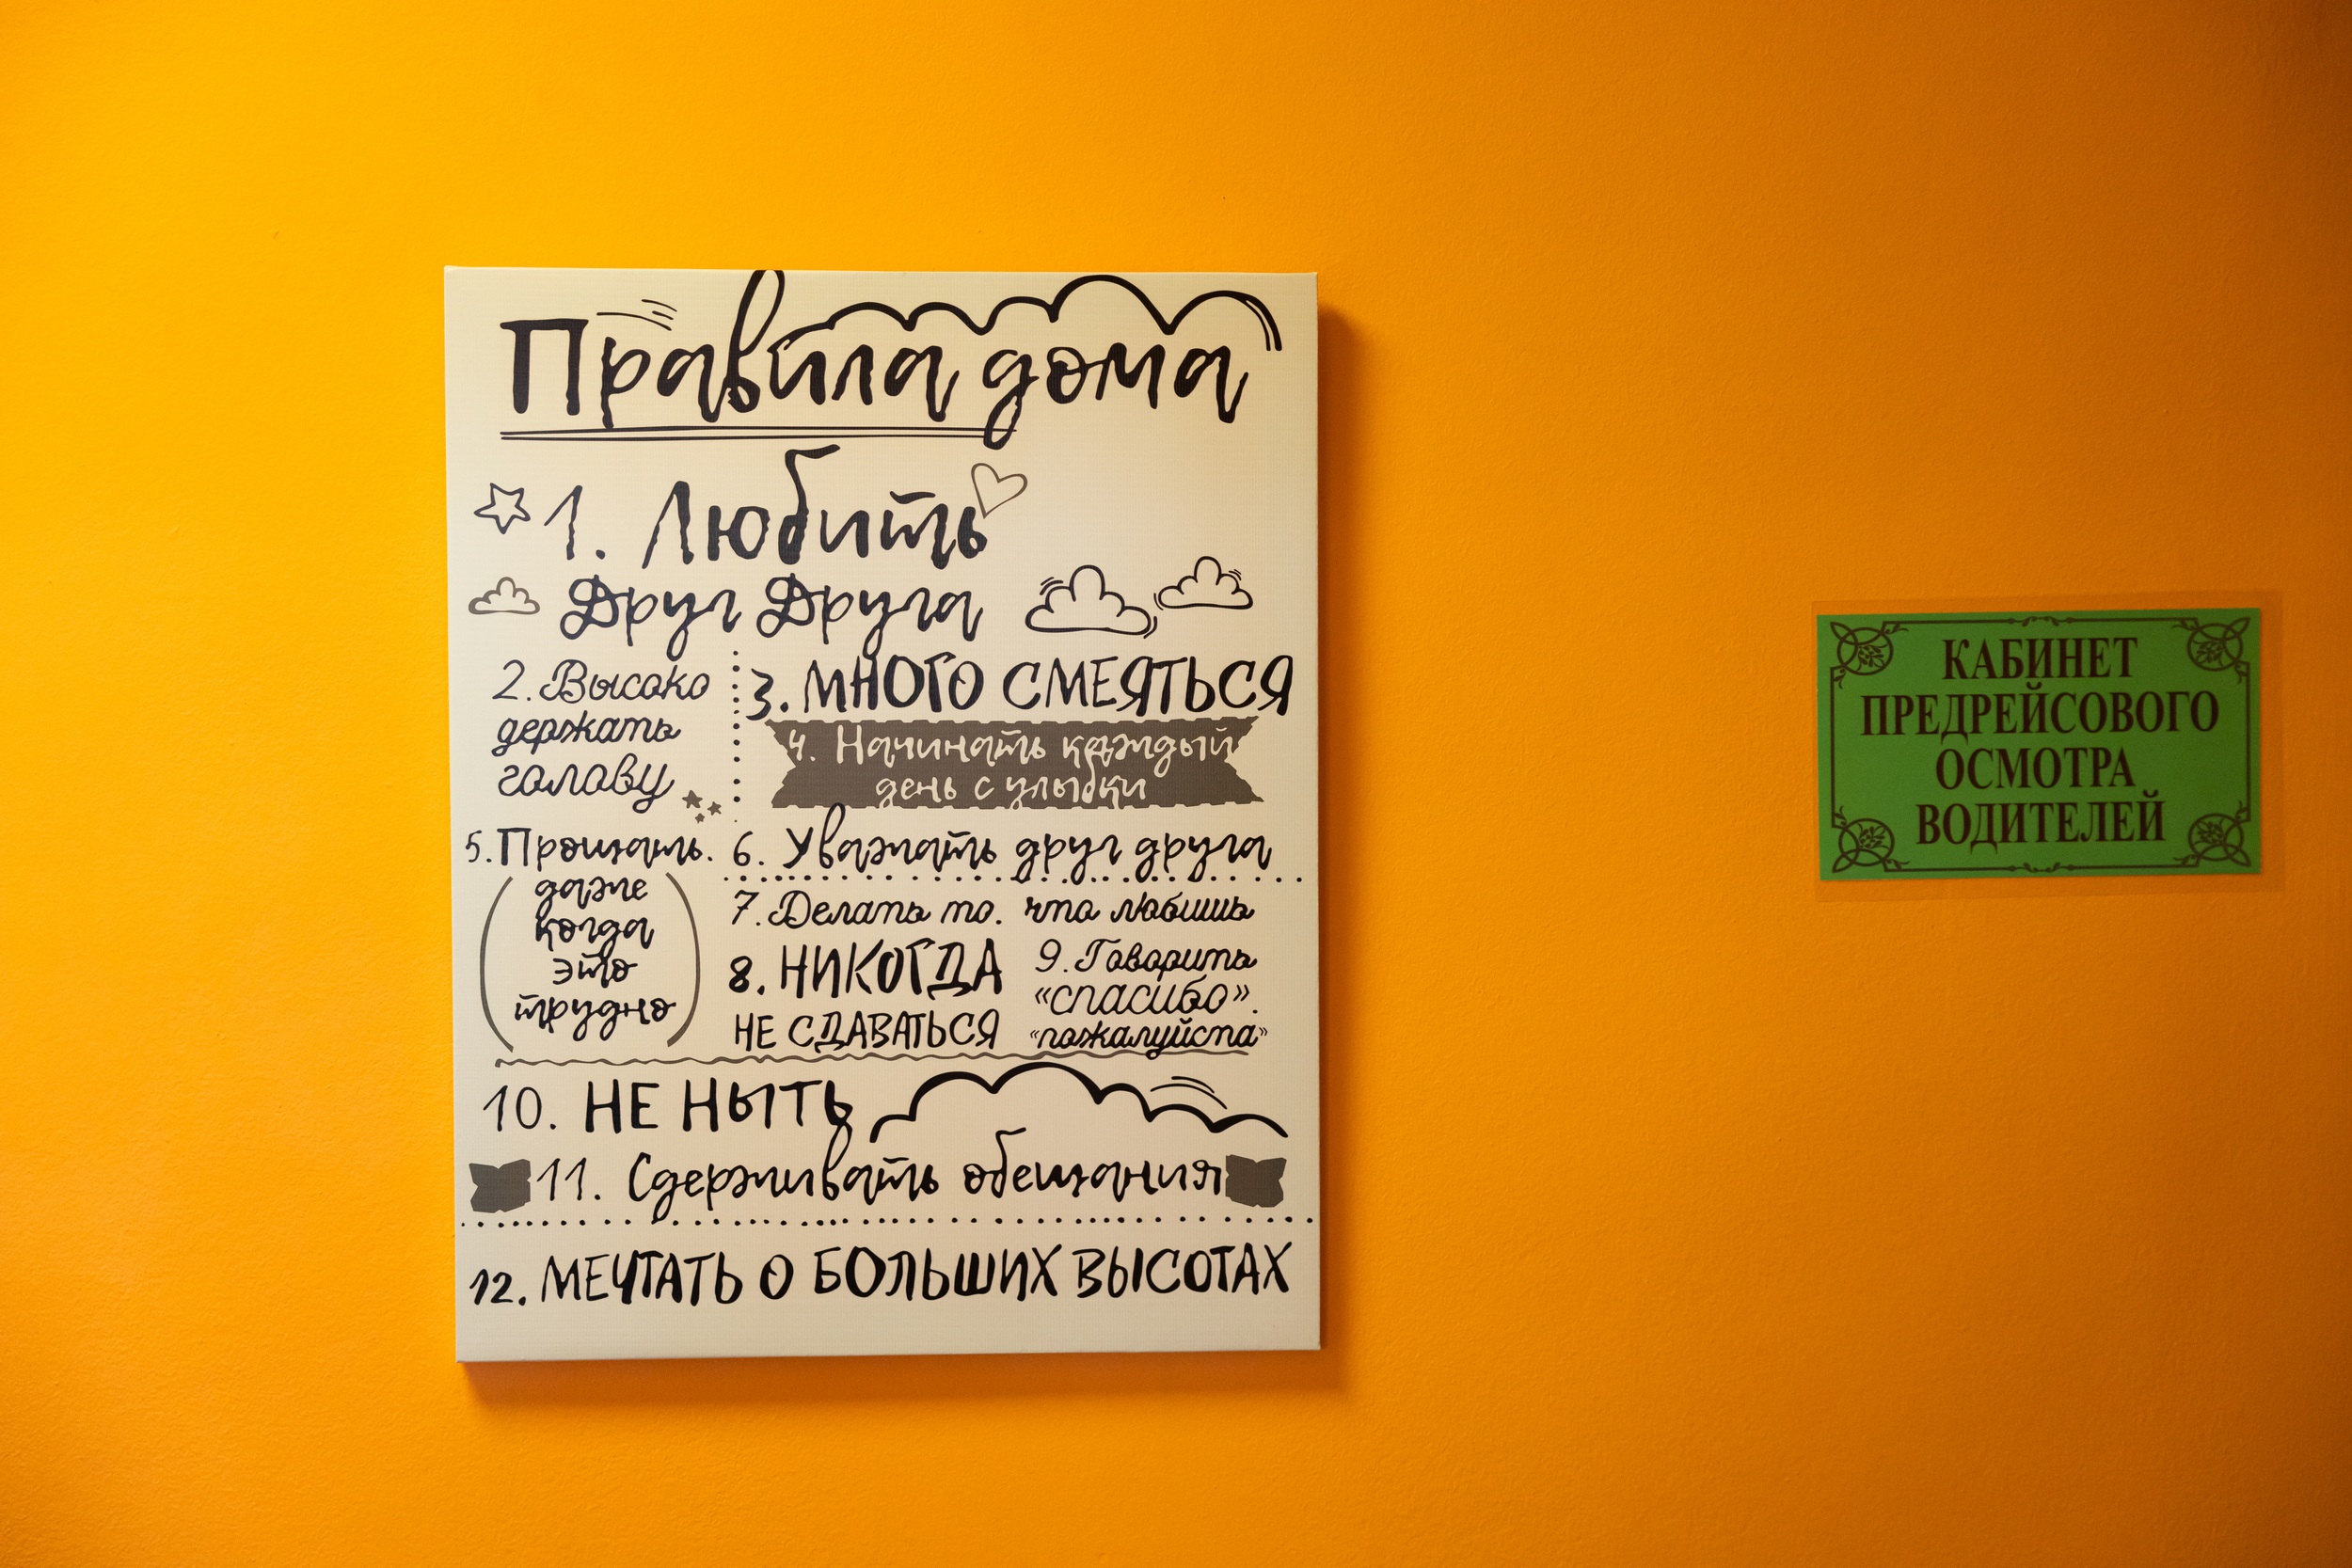 Правила дома
1. Любить
Друг Друга
2. Высоко
держать
голову
3. МНОГО СМЕЯТЬСЯ
4. Начинать каждый
день с улыбки
5. Прощать.
(даже
когда
это
трудно)
6. Уважать друг друга
7. Делать то. что любишь
8. НИКОГДА
НЕ СДАВАТЬСЯ
9. Говорить
«спасибо».
«пожалуйста»
10. НЕ НЫТЬ
11. Сдерживать обещания
12. МЕЧТАТЬ О БОЛЬШИХ ВЫСОТАХ
КАБИНЕТ
ПРЕДРЕЙСОВОГО
ОСМОТРА
ВОДИТЕЛЕЙ